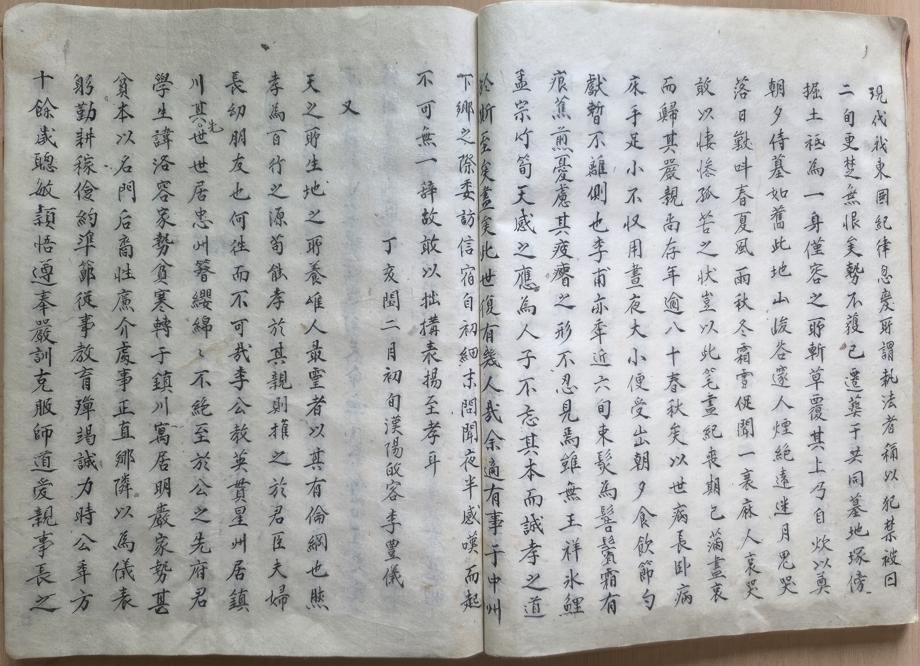 現代我東國紀律忍慶所謂執法者稱以犯禁被囚
二旬更楚無恨矣勢不獲已遷葬于共同墓地塚傍
掘土穴爲一身僅容之所斬草覆其上乃自炊以奠
朝夕侍墓如舊此地山峻谷邃人煙絶遠迷月鬼哭
落日歎呌春夏風雨秋冬霜雪促聞一衰麻人哀哭
敢以悽慘孤苦之狀豈以此笔畫紀喪期已滿盡哀
而歸其嚴親尙存年逾八十春秋矣以世病長卧病
床手足小不収用晝夜大小便受出朝夕食飮節勺
獻暫不離側也李甫亦年近六旬束髮為髻鬢霜有
痕焦煎憂慮其疲癠之形不忍見焉雖無王祥氷鯉
孟宗竹筍天感之應為人子不忘其本而誠孝之道
於斯至矣盡矣此世復有幾人哉余適有事于中州
下鄕之際委訪信宿自初細末問聞夜半感嘆而起
不可無一辞故敢以拙搆表揚至孝耳
丁亥閏二月初旬漢陽皈客李豊儀
又
天之所生地之所養唯人最靈者以其有倫綱也然
孝為百行之源苟能孝於其親則推之於君臣夫婦
長幼朋友也何徃而不可哉李公教英貫星州居鎭
川其先世世居忠州簪纓綿〻不絶至於公之先府君
學生諱洛容家勢貧寒轉于鎭川寓居明巖家勢甚
貧本以名門后裔性㢘介處事正直鄉隣以為儀表
躬勤耕稼儉約準節從事教育殫竭誠力時公年方
十餘歲聰敏穎悟遵奉嚴訓克服師道愛親事長之